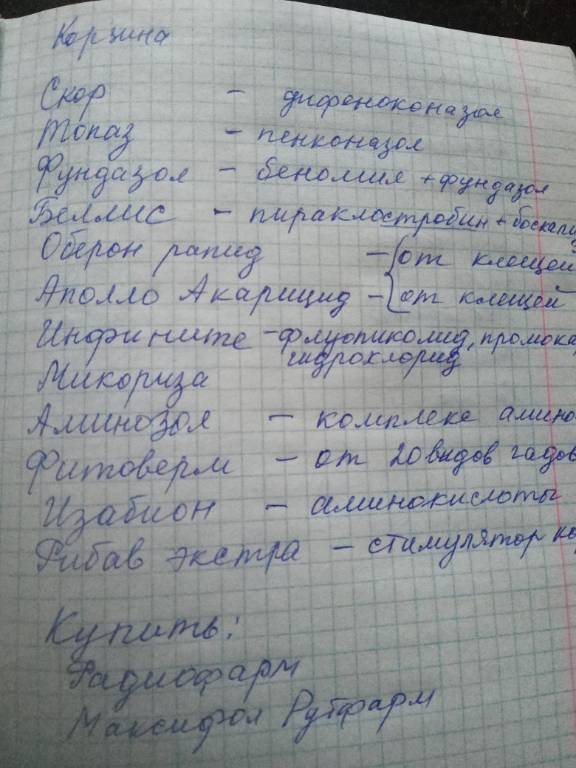 Корзина
Скор - дифеноконазол
Топаз - пенконазол
Фундазол - беномил + фундазол
Беллис - пираклостробин + боскали
Оберон рапид - от клещей
Аполло Акарицид - от клещей
Инфините - флуопиколид, промока
гидрохлорид
Микориза
Аминозол - комплекс амино
Фитоверм - от 20 видов гадов
Изабион - аминокислоты
Рибав экстра - стимулятор ко
Купить:
Радиофарм
Максифол Рутфарм